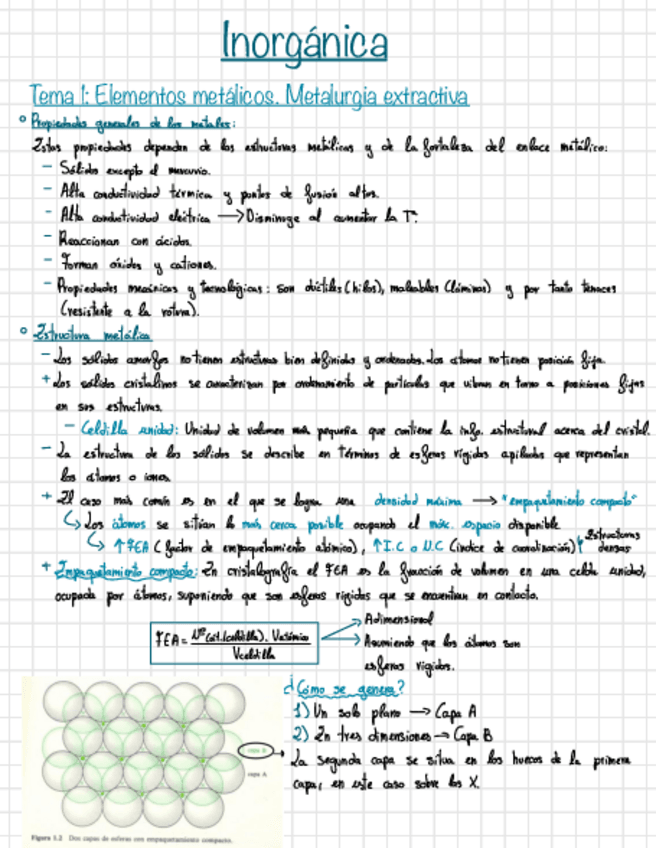 Inorgánica
Tema 1: Elementos metálicos. Metalurgia extractiva
° Propiedades generales de los metales:
Estas propiedades dependen de las estructuras metálicas y de la fortaleza del enlace metálico:
- Sólidos excepto el mercurio.
- Alta conductividad térmica y puntos de fusión altos.
- Alta conductividad eléctrica → Disminuye al aumentar la Tª.
- Reaccionan con ácidos.
- Forman óxidos y cationes.
- Propiedades mecánicas y tecnológicas: son dúctiles (hilos), maleables (láminas) y por tanto tenaces
(resistente a la rotura).
° Estructura metálica
- Los sólidos amorfos no tienen estructuras bien definidas y ordenadas. Los átomos no tienen posición fija.
+ Los sólidos cristalinos se caracterizan por ordenamiento de partículas que vibran en torno a posiciones fijas
en sus estructuras.
- Celdilla unidad: Unidad de volumen más pequeña que contiene la info. estructural acerca del cristal.
- La estructura de los sólidos se describe en términos de esferas rígidas apiladas que representan
los átomos o iones.
+ El caso más común es en el que se logra una densidad máxima → "empaquetamiento compacto"
↳ Los átomos se sitúan lo más cerca posible ocupando el máx. espacio disponible
↳ ↑FEA (factor de empaquetamiento atómico), ↑I.C o N.C (índice de coordinación) Estructuras
densas
+ Empaquetamiento compacto: En cristalografía el FEA es la fracción de volumen en una celda unidad,
ocupada por átomos, suponiendo que son esferas rígidas que se encuentran en contacto.
FEA = Nº(at./celdilla). Vatómico
Vceldilla
→ Adimensional
→ Asumiendo que los átomos son
esferas rígidas.
¿Cómo se genera?
1) Un solo plano → Capa A
2) En tres dimensiones → Capa B
La segunda capa se situa en los huecos de la primera
capa, en este caso sobre los X.
capa B
capa A
Figura 1.2 Dos capas de esferas con empaquetamiento compacto.